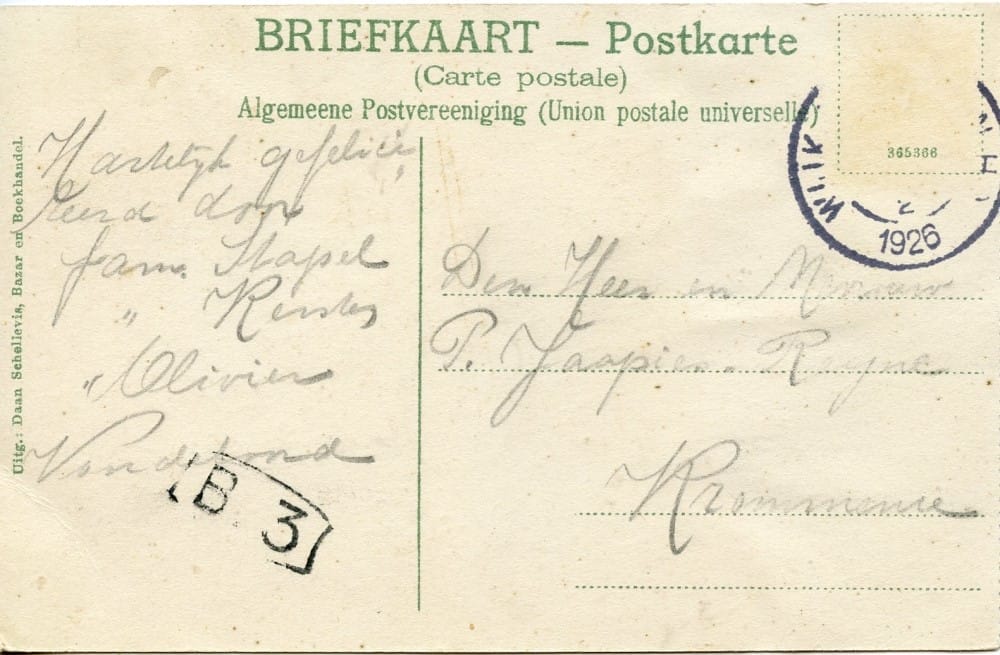 BRIEFKAART — Postkarte
(Carte postale)
Algemeene Postvereeniging (Union postale universelle)
365366
WIJK
1926
Uitg.: Daan Schellevis, Bazar en Boekhandel.
Hartelijk gefelici„
teerd door
fam. Stapel
„ Kersten
„ Olivier
B 3
Den Heer en Mevrouw
P. Jaapies. Reyne
Krommenie